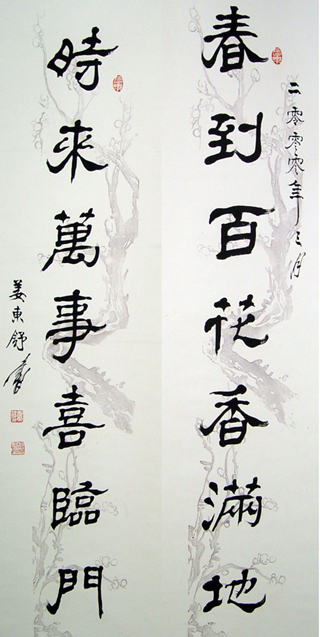 春到百花香滿地
二零零零年三月
時來萬事喜臨門
姜東舒書